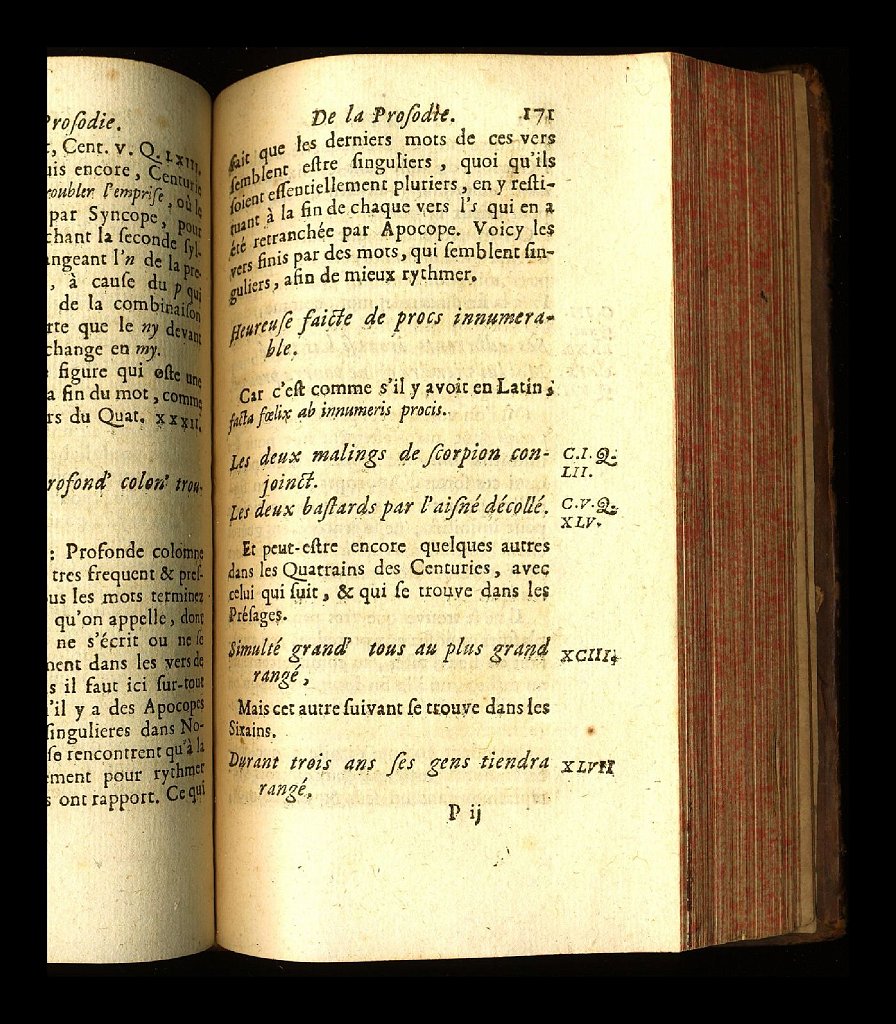 Prosodie.
t, Cent. v. Q. LXIII.
uis encore, Centurie
roubler l'emprise, où le
par Syncope, pour
chant la seconde syl-
angeant l'n de la pre-
, à cause du p qui
de la combinaison
rte que le ny devant
change en my.
figure qui oste une
a fin du mot, comme
rs du Quat. XXXII.
rofond' colon' trou-
: Profonde colomne
tres frequent & pres-
ous les mots terminez
qu'on appelle, dont
ne s'écrit ou ne se
ment dans les vers de
s il faut ici sur-tout
'il y a des Apocopes
singulieres dans No-
se rencontrent qu'à la
ement pour rythmer
s ont rapport. Ce qui
De la Prosodie. 171
fait que les derniers mots de ces vers
semblent estre singuliers, quoi qu'ils
soient essentiellement pluriers, en y resti-
tuant à la fin de chaque vers l's qui en a
été retranchée par Apocope. Voicy les
vers finis par des mots, qui semblent sin-
guliers, afin de mieux rythmer.
Heureuse faicte de procs innumera-
ble.
Car c'est comme s'il y avoit en Latin;
facta fœlix ab innumeris procis.
Les deux malings de scorpion con- C.I.Q.
joinct. LII.
Les deux bastards par l'aisné décollé. C.V.Q.
XLV.
Et peut-estre encore quelques autres
dans les Quatrains des Centuries, avec
celui qui suit, & qui se trouve dans les
Présages.
Simulté grand' tous au plus grand XCIII.
rangé,
Mais cet autre suivant se trouve dans les
Sixains.
Durant trois ans ses gens tiendra XLVII
rangé.
P ij